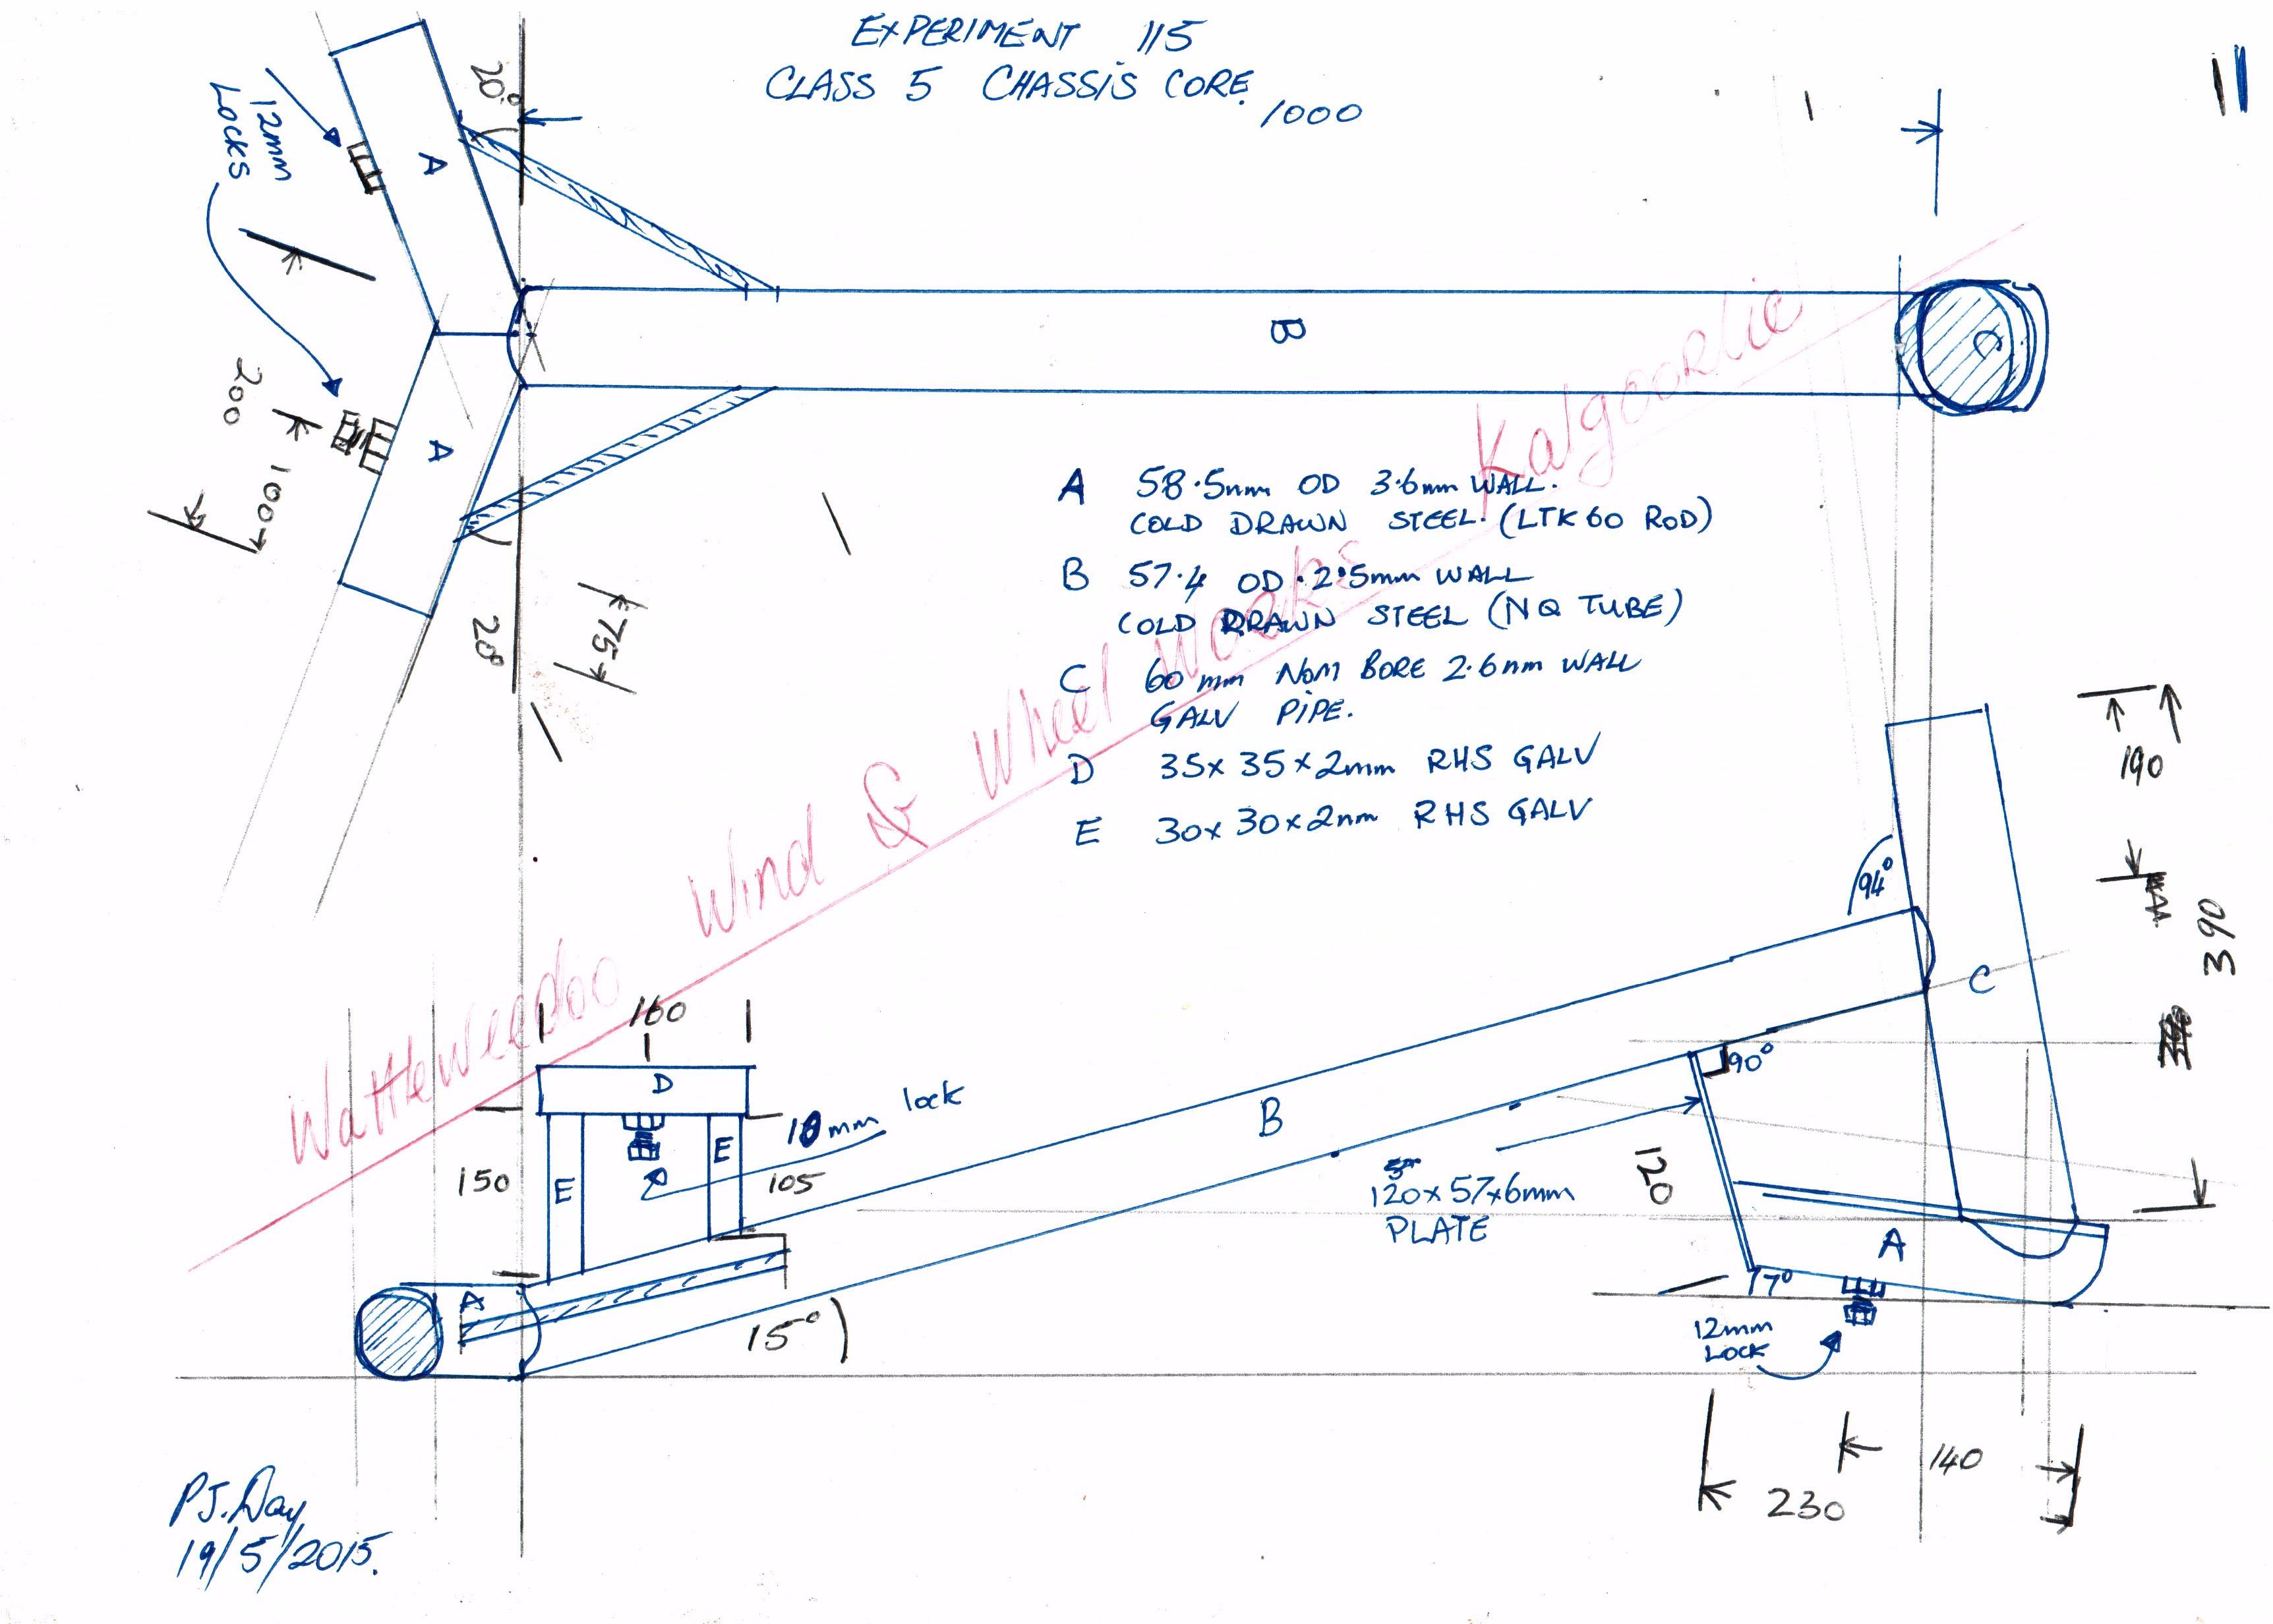 EXPERIMENT 115
CLASS 5 CHASSIS CORE.
1000
11
20°
12mm
LOCKS
A
B
A
200
100
20°
75
A 58.5mm OD 3.6mm WALL.
COLD DRAWN STEEL. (LTK60 ROD)
B 57.4 OD. 2.5mm WALL
COLD DRAWN STEEL (NQ TUBE)
C 60 mm NOM BORE 2.6mm WALL
GALV PIPE.
D 35x35x2mm RHS GALV
E 30x30x2mm RHS GALV
Wattleweedoo Wind & Wheel Works Kalgoorlie
190
94°
390
C
160
D
10mm lock
90°
B
E
E
150
105
120
120x57x6mm
PLATE
A
A
77°
15°
12mm
LOCK
140
230
P.J. Day
19/5/2015.